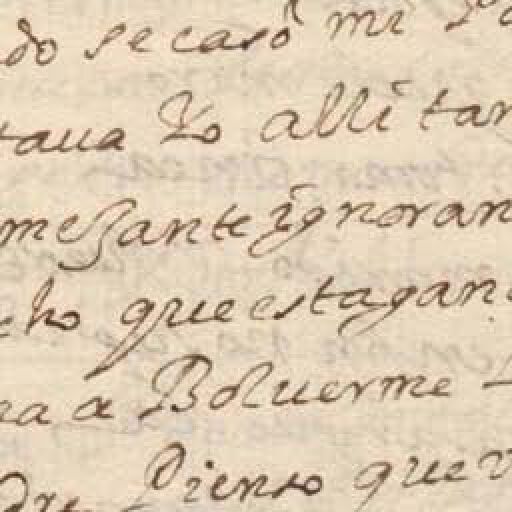 do se casó mi
taua Yo alli tan
mejante ignoran
cho que esta gan
a a Boluerme
dre Pienso que v